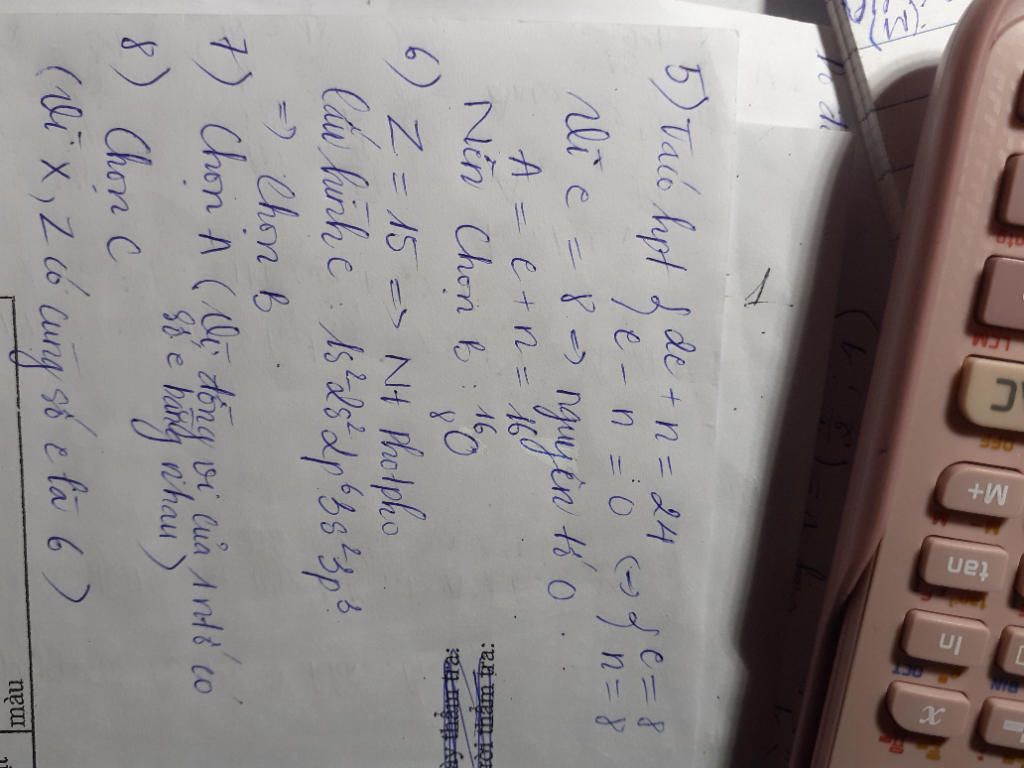 5) Ta có hpt { 2e + n = 24
e - n = 0 <=> { e = 8
n = 8
Vì e = 8 => nguyên tố O
A = e + n = 16
Nên Chọn B : ¹⁶₈O
6) Z = 15 => Nt photpho
Cấu hình e : 1s²2s²2p⁶3s²3p³
=> Chọn B
7) Chọn A (Vì đồng vị của 1 ntố có
số e bằng nhau)
8) Chọn C
(Vì X, Z có cùng số e là 6)
màu
LCM
M+
tan
ln
OCT
x